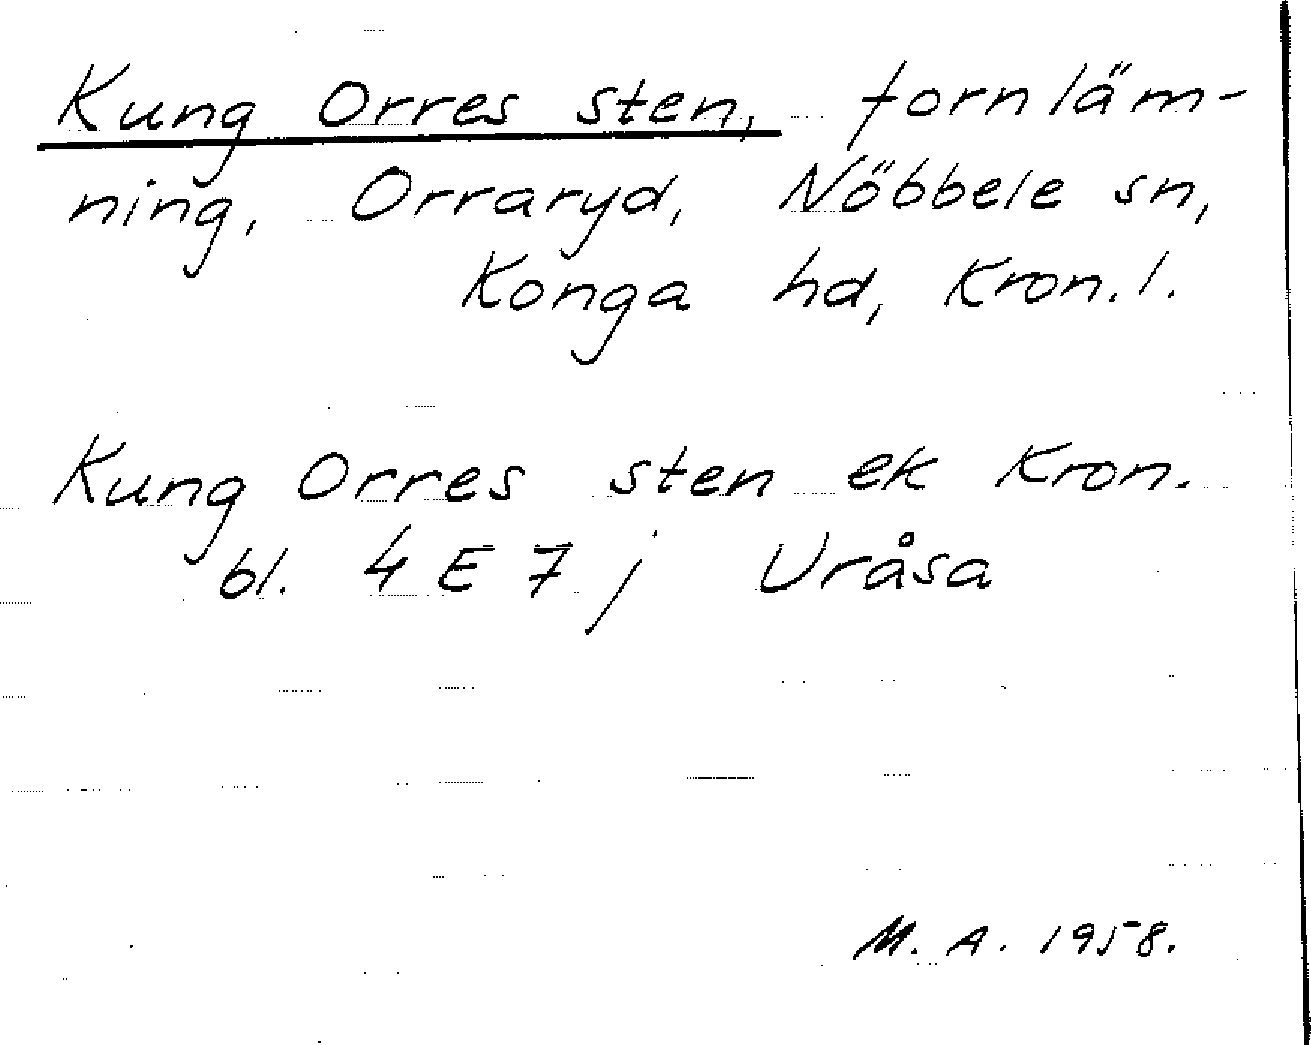 Kung Orres sten, fornläm-
ning, Orraryd, Nöbbele sn,
Konga hd, Kron.l.
Kung Orres sten ek Kron.
bl. 4 E 7 j Uråsa
M. A. 1958.